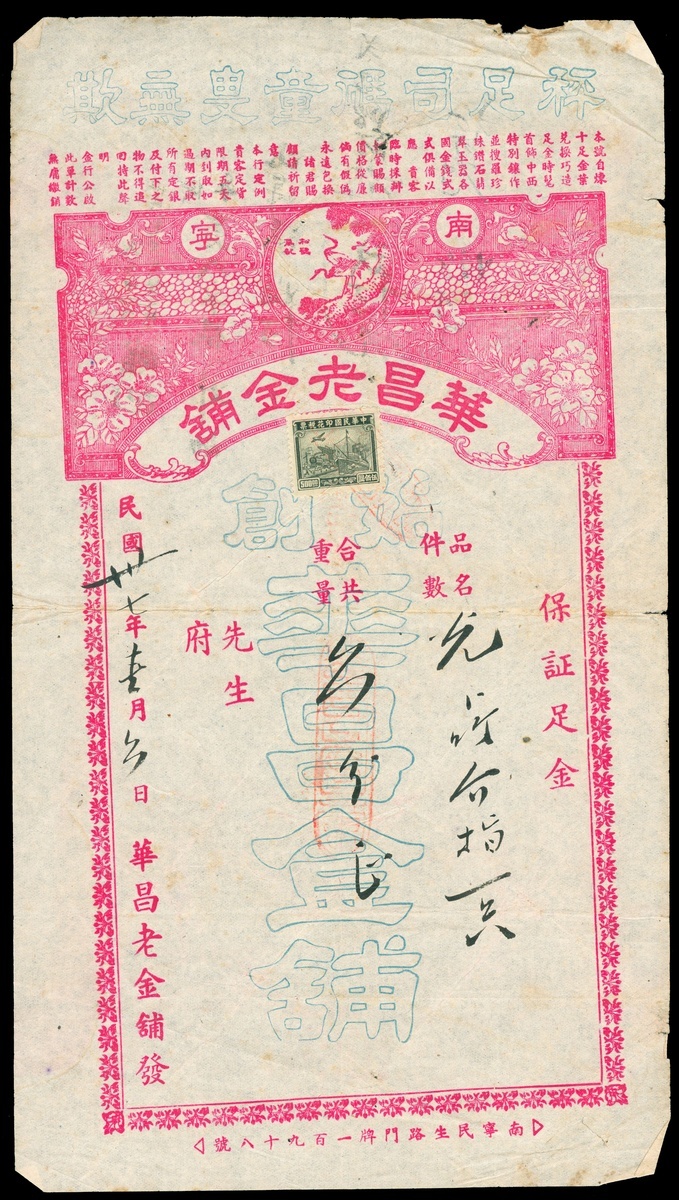 秤足司碼童叟無欺
本號自煉
十足金葉
兌換巧造
足金時髦
首飾中西
特別鑲作
並搜羅珍
珠鑽石翡
翠玉器各
國金錢式
式俱備以
應貴客
臨時採辦
如蒙賜顧
價格從廉
倘有假偽
永遠包換
諸君賜
顧請祈留
意
本行定例
貴客定貨
限期五天
內到取如
過期不取
所有定銀
及付下之
物不得追
回特此聲
明
金行公啟
此單計數
無腐繳銷
南寧
和碰
為記
華昌老金舖
中華民國印花稅票
500
伍佰圓
始創
華昌金舖
保証足金
品名
件數
合共
重量
兌
介指一只
六分正
先生
府
民國卅七年壹月六日
華昌老金舖發
南寧民生路門牌一百九十八號